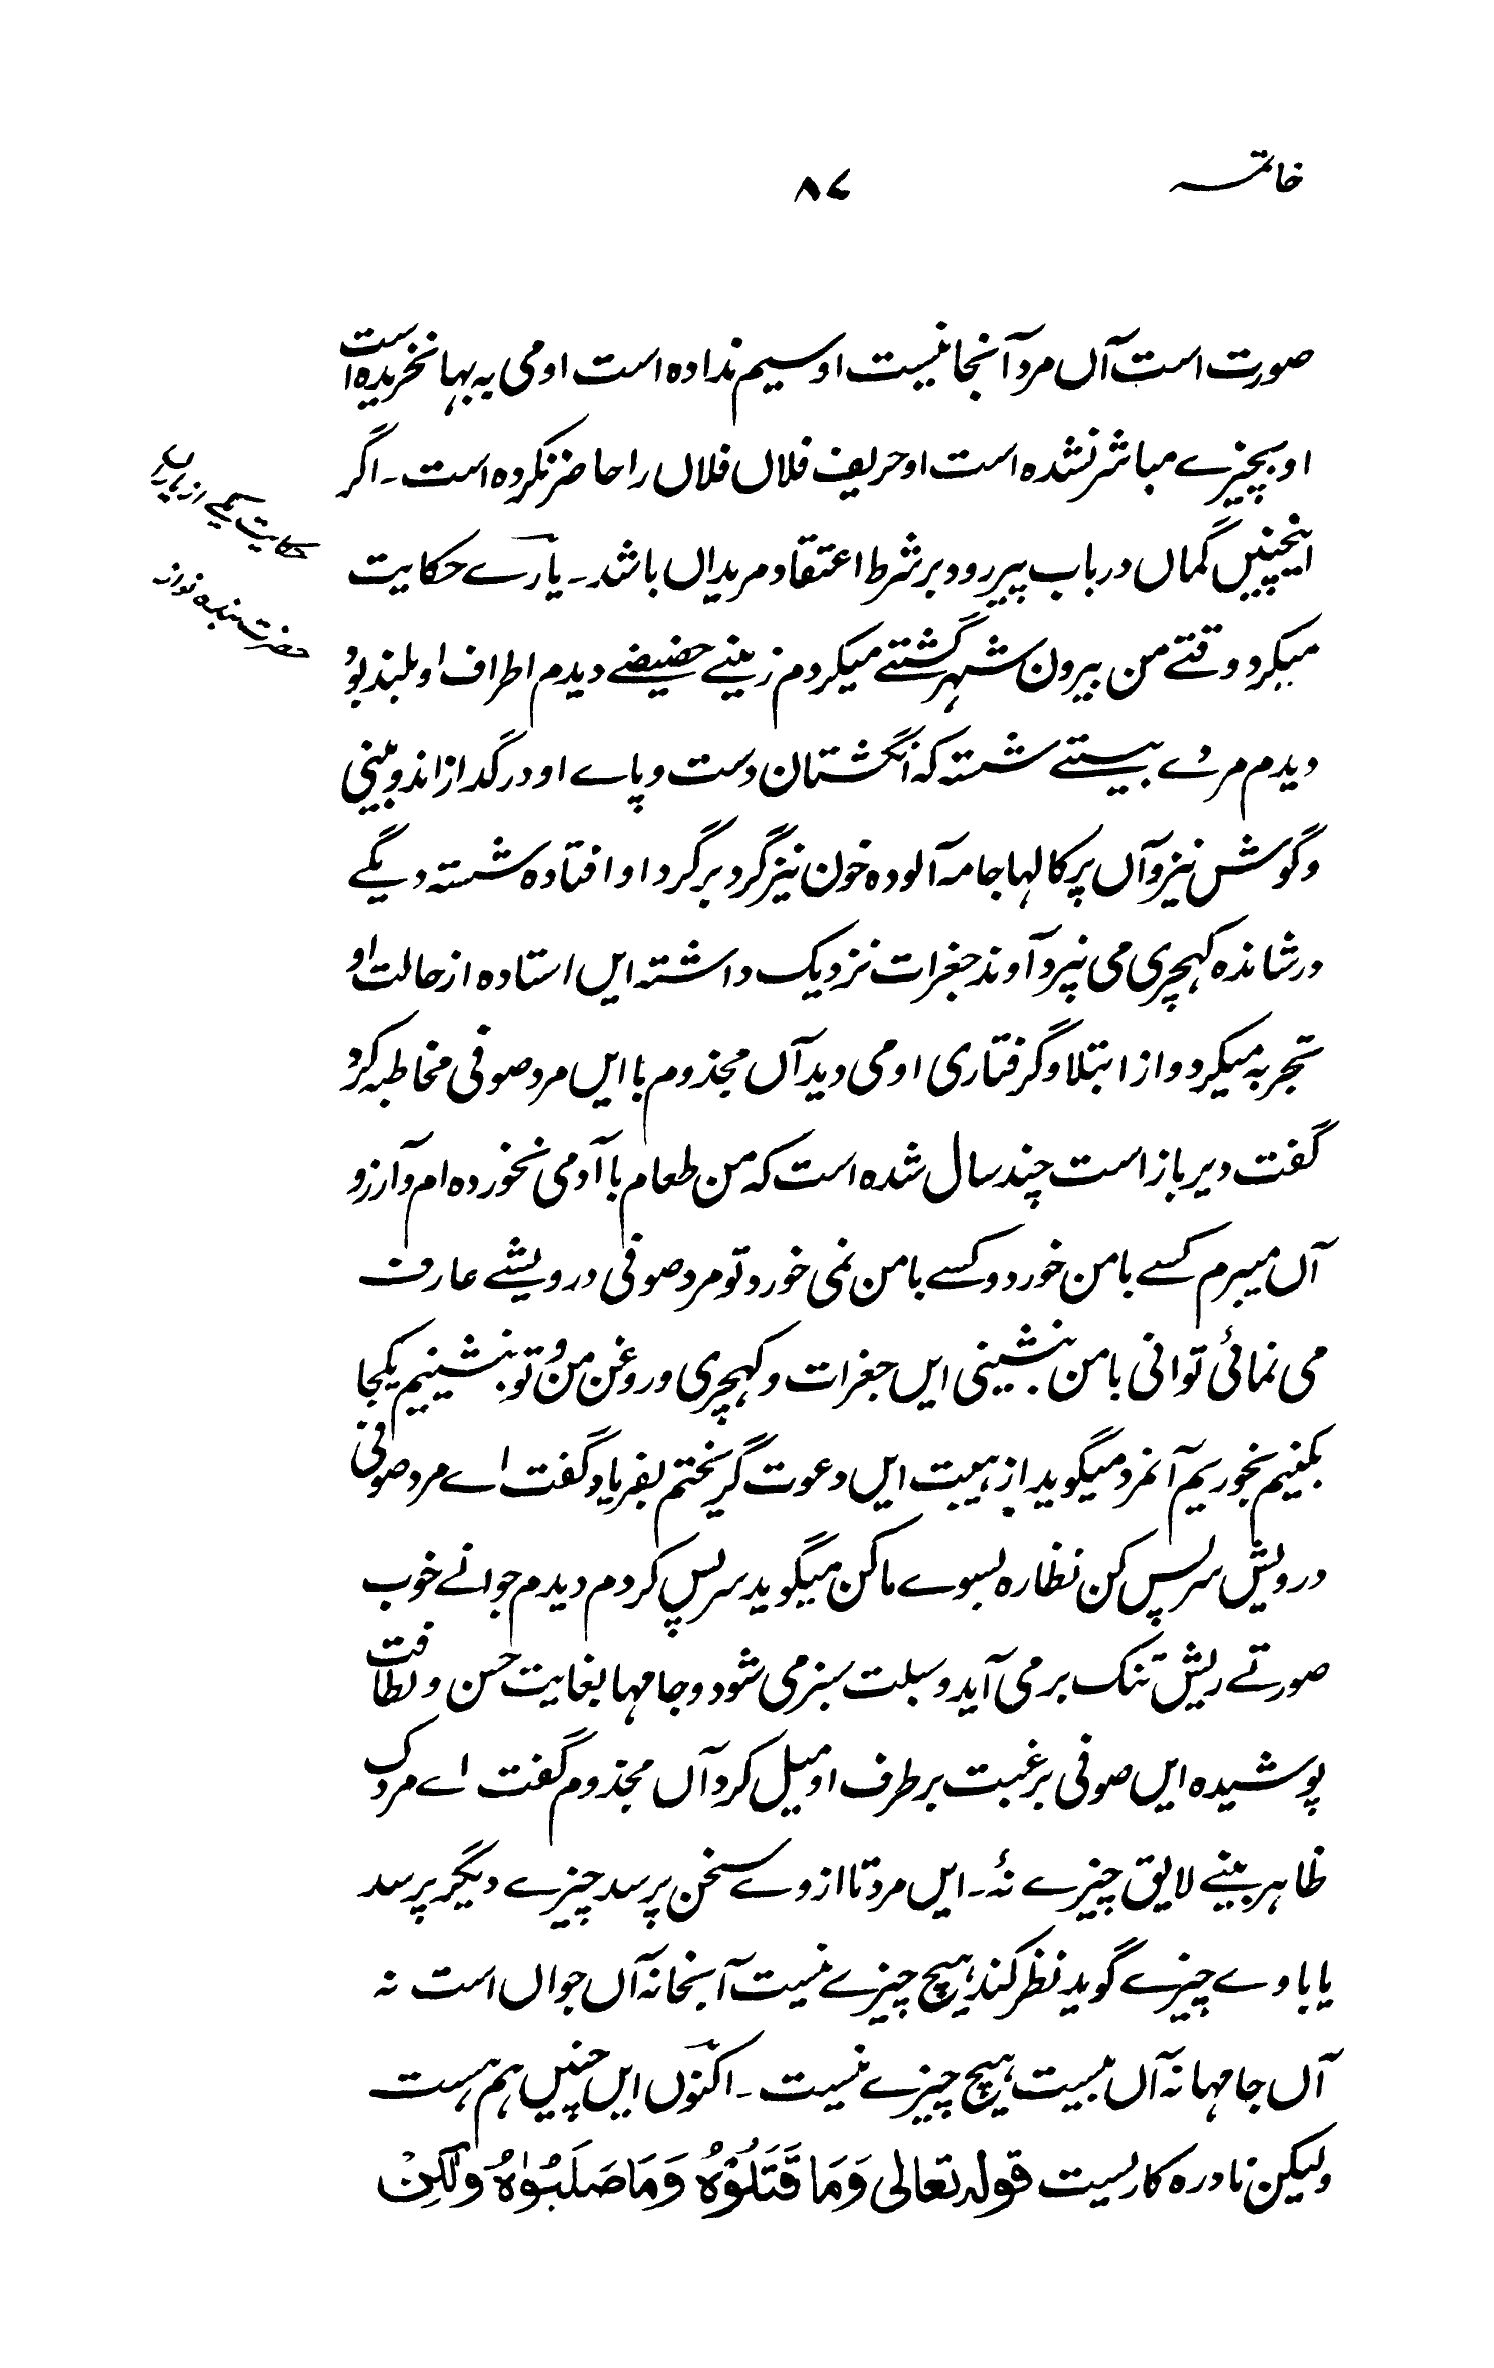 خاتمہ
۸۷
صورت است آں مرد آنجا نیست او سیم ندادہ است او می بہ بہا نخریدہ است
او بچیزے مباشر نشدہ است او حریف فلاں فلاں را حاضر نکردہ است۔ اگر
اینچنیں گماں در باب پیر رود بر شرط اعتقاد مریداں باشد۔ یارے حکایت
میکرد وقتے من بیرون شہر گشتے میکردم زمینے حضیضے دیدم اطراف او بلند بود
دیدم مردے بیستے شستہ کہ انگشتان دست و پاے او در گداز اند و بینی
و گوش نیز و آں پرکالہا جامہ آلودہ خون نیز گرد بر گرد او افتادہ شستہ دیگے
در شاندہ کہچری می پزد و آوند جغرات نزدیک داشتہ ایں استادہ از حالت او
تجربہ میکرد و از ابتلا و گرفتاری او می دید آں مجذوم با ایں مرد صوفی مخاطبہ کرد
گفت دیر باز است چند سال شدہ است کہ من طعام با آدمی نخوردہ ام و آرزو
آں میبرم کسے با من خورد و کسے با من نمی خورد تو مرد صوفی درویشے عارف
می نمائی توانی با من بنشینی ایں جغرات و کہچری و روغن من و تو بنشینیم یکجا
بکنیم بخوریم آنمرد میگوید از ہیبت ایں دعوت گریختم بفریاد گفت اے مرد صوفی
درویش سر پس کن نظارہ بسوے ما کن میگوید سر پس کردم دیدم جوانے خوب
صورتے ریش تنک برمی آید و سبلت سبز می شود و جامہا بغایت حسن و لطافت
پوشیدہ ایں صوفی برغبت بر طرف او میل کرد آں مجذوم گفت اے مردک
ظاہر بینے لایق چیزے نۂ۔ ایں مرد تا از وے سخن پرسد چیزے دیگر پرسد
یا با وے چیزے گوید نظر کند ہیچ چیزے نیست آنجا نہ آں جواں است نہ
آں جامہا نہ آں ہیبت ہیچ چیزے نیست۔ اکنوں ایں چنیں ہم ہست
ولیکن نادرہ کاریست قولہ تعالی وَمَا قَتَلُوْهُ وَمَا صَلَبُوْهُ وَلٰكِنْ
حکایت یکے از یاران
حضرت بندہ نواز